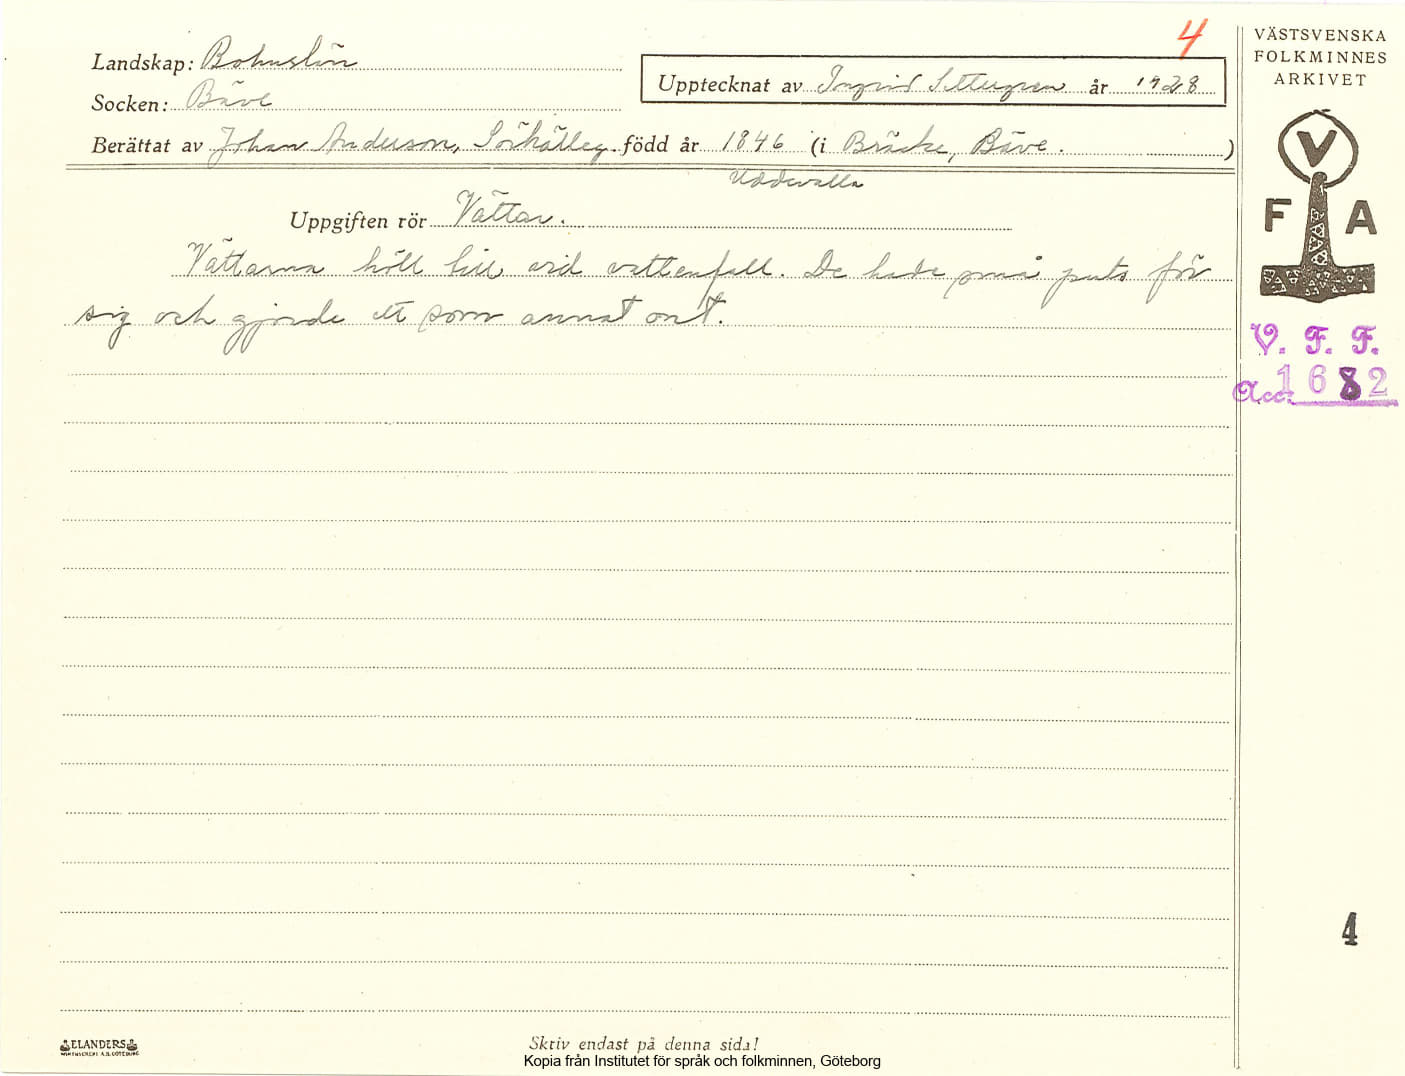 4
Landskap: Bohuslän
Upptecknat av Ingrid år 1928
Socken: Bäve
Berättat av Johan Anderson, född år 1846 (i Bräcke, Bäve. )
Uddevalla
Uppgiften rör Vättar.
Vättarna höll till vid vattenfall. De hade små puts för
sig och gjorde ett som annat ont.
VÄSTSVENSKA
FOLKMINNES
ARKIVET
V
F A
V. F. F.
Acc. 1682
4
ELANDERS
Skriv endast på denna sida!
Kopia från Institutet för språk och folkminnen, Göteborg